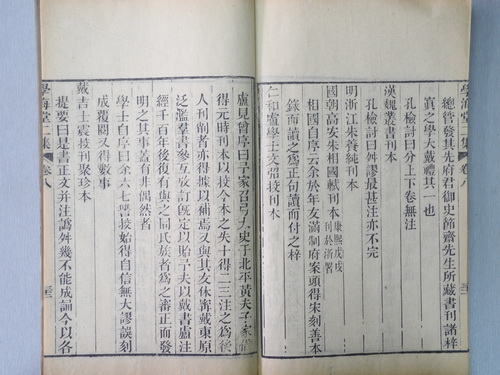 學海堂二集 卷八
總管發其先府君御史節齋先生所藏書刊諸梓
寘之學大戴禮其一也
漢魏叢書刊本
孔檢討曰分上下卷無注
明浙江朱養純刊本
孔檢討曰舛謬最甚注亦不完
國朝高安朱相國軾刊本 康熙戊戌刊於浙署
相國自序云余於年友滿制府案頭得宋刻善本
錄而讀之爲正句讀而付之梓
仁和盧學士文弨挍刊本
盧見曾序曰吾家召弓太史于北平黃夫子家借
得元時刊本以挍今本之失十得二三注之爲後
人刊削者亦得據以補焉又與其友休寧戴東原
泛濫羣書參互攷訂旣定以貽予夫以戴書盧注
經千百年後復有與之同氏族者爲之審正而發
明之其事蓋有非偶然者
學士自序曰余六七讐挍始得自信無大謬誤刻
成覆閱又得數事
戴吉士震挍刊聚珍本
提要曰是書正文并注譌舛幾不能成誦今以各
學海堂二集 卷八